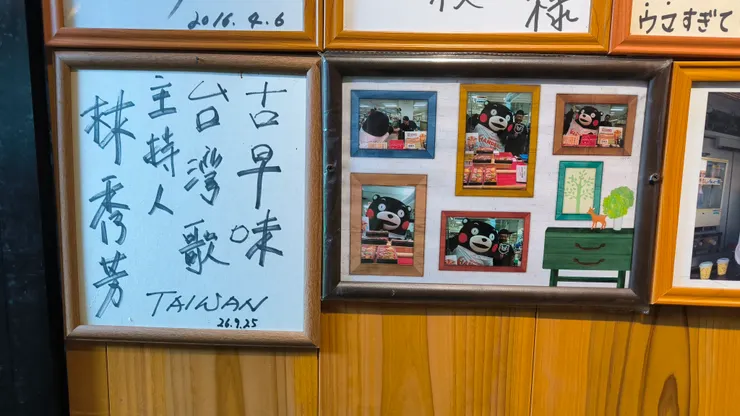 2016.4.6
様
ウマすぎて
古早味。
台灣歌
主持人
林秀芳
TAIWAN
26.9.25